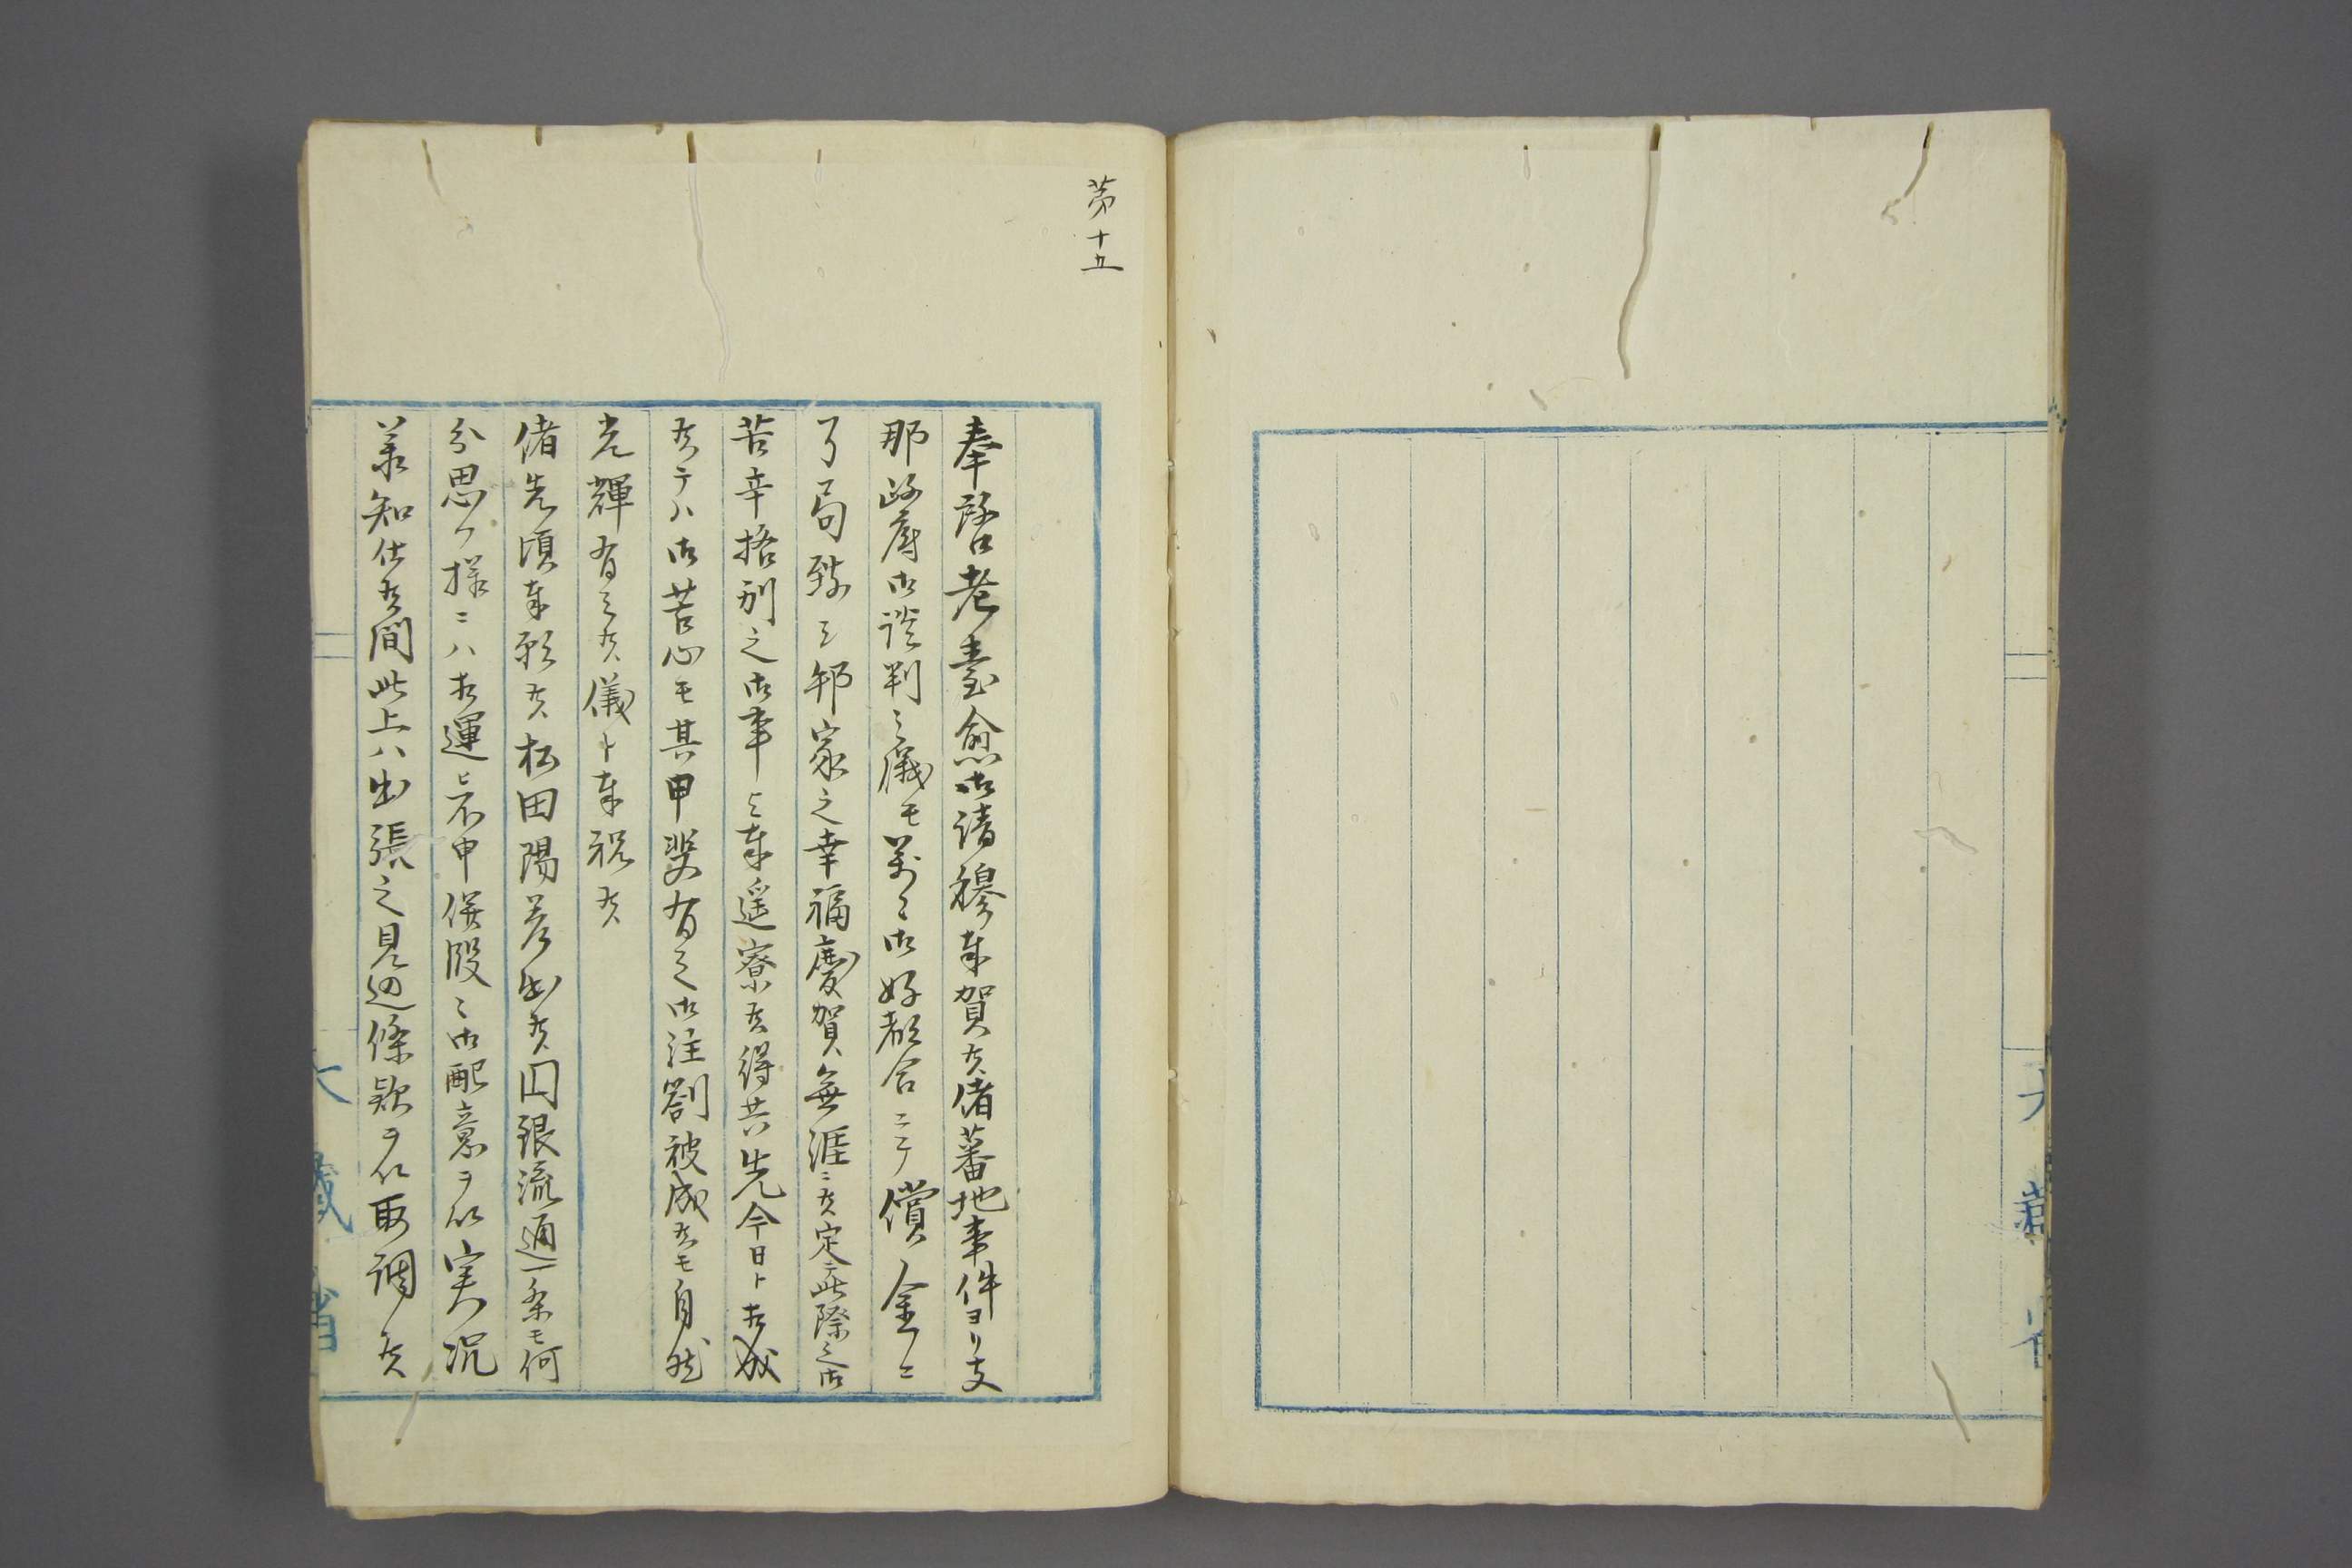 第十五
奉啓老臺愈御清穆奉賀候偖蕃地事件ヨリ支
那政府御談判之儀モ萬々御好都合ニテ償金ニ
了局致シ邦家之幸福慶賀無涯ニ候定テ此際之御
苦辛格別之御事与奉遥察候得共先今日ト相成
候テハ御苦心モ其甲斐有之御注劄被成候モ自然
光輝有之候儀ト奉祝候
偖先頃奉願候松田陽差出候円銀流通一条モ何
分思フ様ニハ相運ヒ不申併段々御配意ヲ以実況
業知仕候間此上ハ出張之見込條款ヲ以取調候
大藏省
大藏省